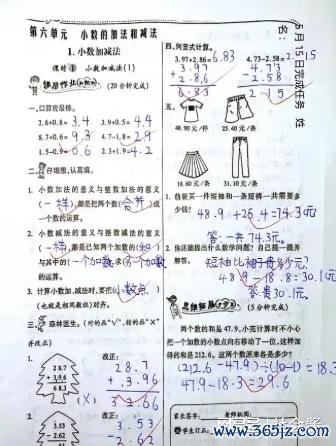 第六单元 小数的加法和减法
1. 小数加减法
课时① 小数加减法(1)
(20分钟完成)
一、口算我最棒。
2.6+0.8= 3.4 3.9+0.5= 4.4
8.7+0.6= 9.3 4.7-1.8= 2.9
1.5-0.9= 0.6 2.3+1.9= 4.2
二、仔细想，认真填。
1. 小数加法的意义与整数加法的意义
(一样)，都是把两个数(合算)成
一个数的运算。
2. 小数减法的意义与整数减法的意义
(一样)，都是已知两个加数的(和)
与其中的(一个加数)求(另一个加数)
的运算。
3. 计算小数加、减法时，要把(小数点)
(也就是相同数位)对齐。
三、森林医生。(对的画"√"，错的画"×"
并改正)
1. 改正：
28.7 28.7
+3.96 +3.96
(×) 32.66
2. 改正：
3.53 3.53
-2.62
四、列竖式计算。
3.97+2.86= 6.83 4.73-2.58= 2.15
3.97 4.73
+2.86 -2.58
6.83 2.15
五、
48.90元/件 25.40元/条
18.80元/条 31.10元/条
1. 倩倩买一件短袖和一条短裤一共需要多
少钱? 48.9+25.4=74.3元
答:一共74.3元。
2. 你还能提出什么数学问题?自己提一提并
解答。 短袖比裙子贵多少元?
48.9-18.8=30.1元
答:贵30.1元。
(5分钟完成)
两个数的和是47.9，小亮计算时不小心
把一个加数的小数点向右移动了一位，这样加
得的和是212.6。这两个数原来各是多少?
(212.6-47.9)÷(10-1)=18.3
47.9-18.3=29.6
家长签字：
5月15日完成任务 姓
名：
www.365jz.com